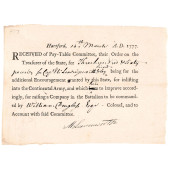 Hartford, 14th March A.D. 1777.
RECEIVED of Pay-Table Committee, their Order on the
Treasurer of the State, for Three hundred & sixty
pounds for Capt. being
for the additional Encouragement granted by this State, for inlisting
into the Continental Army, and which I am to improve accordingly,
for inlisting a Company in the Battalion to be commanded
by William Douglas Esqr. Colonel, and to
Account with said Committee.